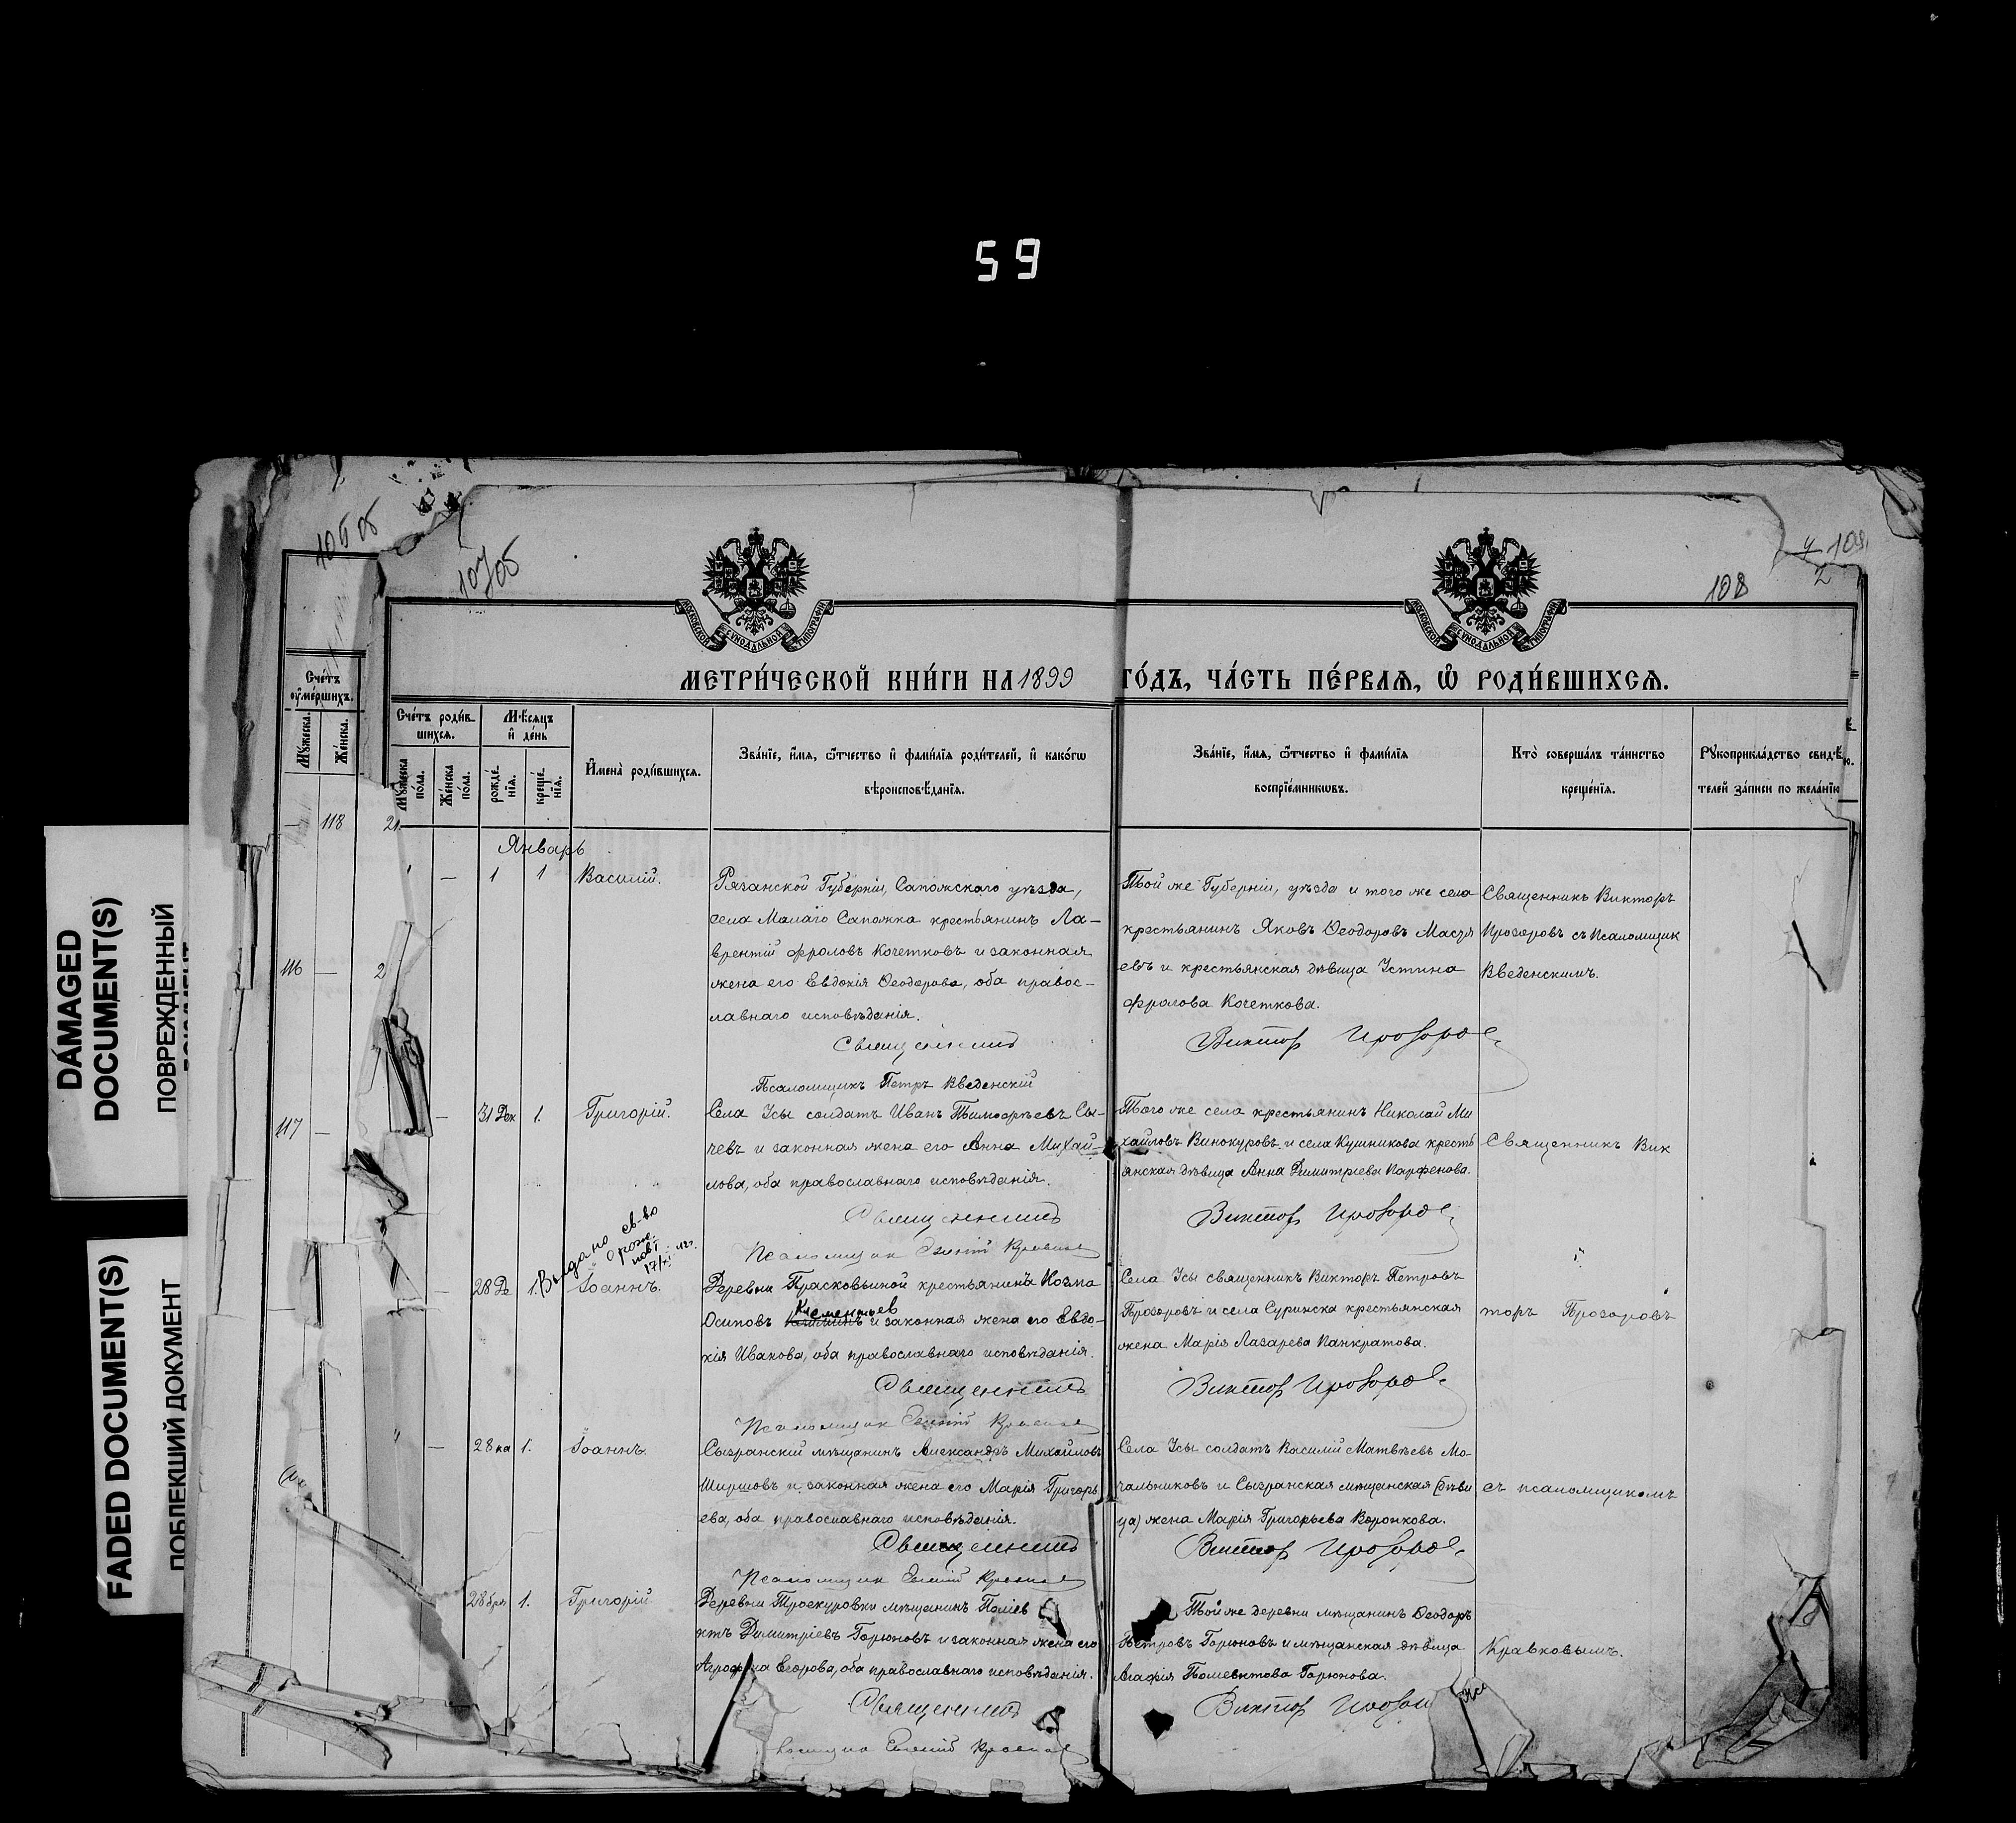 59
DAMAGED
DOCUMENT(S)
ПОВРЕЖДЕННЫЙ
FADED DOCUMENT(S)
ПОБЛЕКШИЙ ДОКУМЕНТ
106 об
107 об
108
109
МОСКОВСКОЙ СѴНОДАЛЬНОЙ ТИПОГРАФІИ
МОСКОВСКОЙ СѴНОДАЛЬНОЙ ТИПОГРАФІИ
МЕТРИ́ЧЕСКОЙ КНИ́ГИ НА 1899 ГО́ДЪ, ЧА́СТЬ ПЕ́РВАѦ, Ѡ҆ РОДИ́ВШИХСѦ.
Сче́тъ
ᲂу҆ме́ршихъ.
Мꙋ́жеска.
Же́нска.
Сче́тъ роди́в-
шихсѧ.
Мꙋ́жеска по́ла.
Же́нска по́ла.
Мѣ́сѧцъ
и҆ де́нь
рожде́-
нїѧ.
креще́-
нїѧ.
И҆мена̀ роди́вшихсѧ.
Зва́нїе, и҆́мѧ, ѻ҆́тчество и҆ фами́лїѧ роди́телей, и҆ како́гѡ
вѣроисповѣ́данїѧ.
Зва́нїе, и҆́мѧ, ѻ҆́тчество и҆ фами́лїѧ
воспрїе́мникѡвъ.
Кто̀ соверша́лъ та́инство
креще́нїѧ.
Рꙋкоприкла́дство свидѣ́-
телей за́писи по жела́нїю
— 118 21
116 — 2
117 —
Январь
— 1 1 Василій.
Рязанской Губерніи, Сапожскаго уѣзда,
села Малаго Сапожка крестьянинъ Ла-
врентій Фроловъ Кочетковъ и законная
жена его Евдокія Ѳеодорова, оба правос-
лавнаго исповѣданія.
Священникъ
Псаломщикъ Петръ Введенскій
Той же Губерніи, уѣзда и того же села
крестьянинъ Яковъ Ѳеодоровъ Масуя
евъ и крестьянская дѣвица Устина
Фролова Кочеткова.
Викторъ Прозоровъ
Священникъ Викторъ
Прозоровъ съ псаломщик
Введенскимъ.
— 31 Дек 1. Григорій.
Села Усы солдатъ Иванъ Тимоѳѣевъ Сы-
чевъ и законная жена его Анна Михай-
лова, оба православнаго исповѣданія.
Священникъ
Того же села крестьянинъ Николай Ми
хайловъ Винокуровъ и села Кушникова кресть
янская дѣвица Анна Димитріева Парфенова.
Викторъ Прозоровъ
Священникъ Вик
Выдано св-во
о рожд-
17/XI 12 г.
— 28 Де 1. Іоаннъ.
Деревни Прасковьиной крестьянинъ Козма
Осиповъ
Клементьев
и законная жена его Евдо-
кія Иванова, оба православнаго исповѣданія.
Священникъ
Села Усы священникъ Викторъ Петровъ
Прозоровъ и села Суринска крестьянская
жена Марія Лазарева Панкратова.
Викторъ Прозоровъ
торъ Прозоровъ
" — 28 ка 1. Іоаннъ.
Сызранскій мѣщанинъ Александръ Михайловъ
Ширшовъ и законная жена его Марія Григорь
ева, оба православнаго исповѣданія.
Священникъ
Села Усы солдатъ Василій Матвѣевъ Мо-
чальниковъ и Сызранская мѣщанская (дѣви
ца) жена Марія Григорьева Воронкова.
Викторъ Прозоровъ
съ псаломщикомъ
28 бря 1. Григорій
Деревни Троекуровки мѣщанинъ Поліев
ктъ Димитріевъ Горюновъ и законная жена его
Егорова, оба православнаго исповѣданія.
Священникъ
Той же деревни мѣщанинъ Ѳеодоръ
Петровъ Горюновъ и мѣщанская дѣвица
Агафія Полиевктова Горюнова.
Викторъ
Кравковымъ.